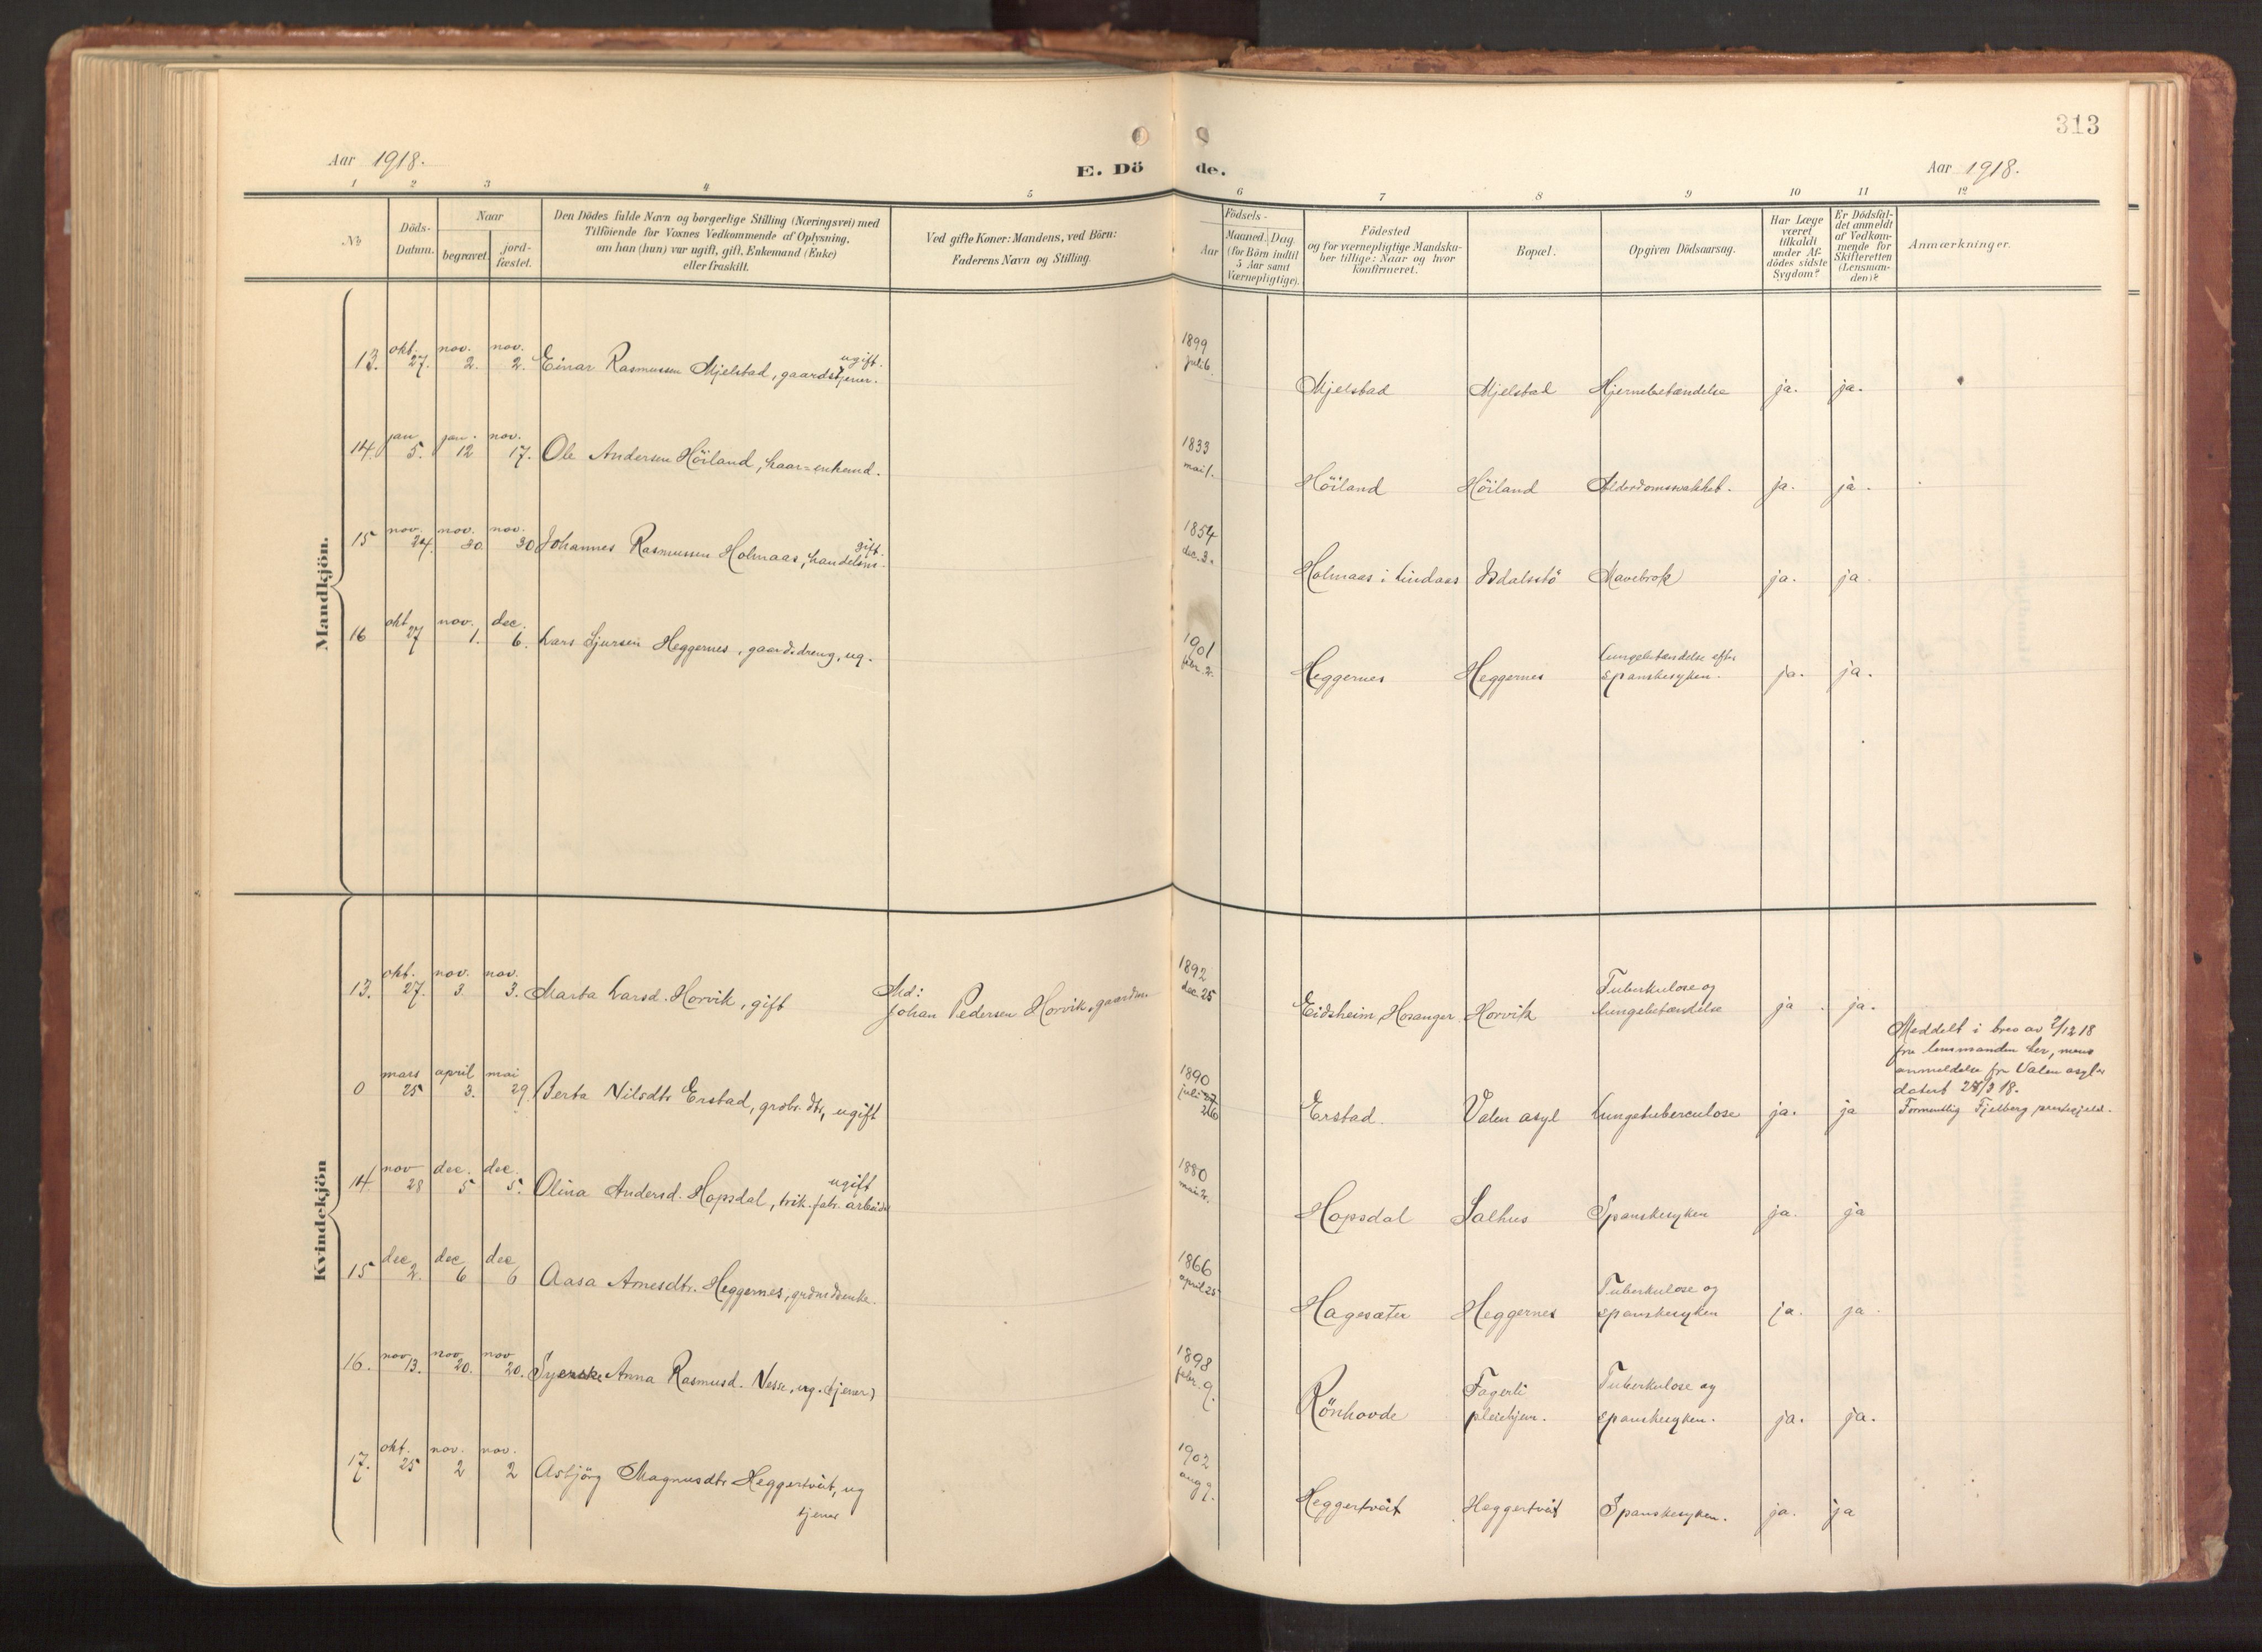 313
Aar 1918.
E. Dö de.
Aar 1918.
1 2 3 4 5 6 7 8 9 10 11 12
No
Döds-
Datum.
Naar
begravet.
jord-
fæstet.
Den Dödes fulde Navn og borgerlige Stilling (Næringsvei) med
Tilföiende for Voxnes Vedkommende af Oplysning,
om han (hun) var ugift, gift, Enkemand (Enke)
eller fraskilt.
Ved gifte Koner: Mandens, ved Börn:
Faderens Navn og Stilling.
Födsels-
Aar
Maaned. Dag
(for Börn indtil
5 Aar samt
Værnepligtige).
Födested
og for værnepligtige Mandska-
ber tillige: Naar og hvor
konfirmeret.
Bopæl.
Opgiven Dödsaarsag.
Har Læge
været
tilkaldt
under Af-
dödes sidste
Sygdom?
Er Dödsfal-
det anmeldt
af Vedkom-
mende for
Skifteretten
(Lensman-
den)?
Anmærkninger.
Mandkjön.
13. okt. 27. nov. 2. nov. 2. Einar Rasmussen Mjelstad, gaardstjener. ugift. 1899 juli 6. Mjelstad Mjelstad Hjernebetændelse ja. ja.
14. jan 5. jan. 12 nov. 17. Ole Andersen Höiland, kaar=enkemd. 1833 mai 1. Höiland Höiland Alderdomssvakhet. ja. ja.
15 nov. 24. nov. 30. nov. 30 Johannes Rasmussen Holmaas, handelsm. gift. 1854 dec. 3. Holmaas i Lindaas Isdalstö Mavebrok ja. ja.
16 okt 27 nov. 1. dec. 6. Lars Sjursen Heggernes, gaardsdreng, ug. 1901 febr. 2. Heggernes Heggernes Lungebetændelse efter
spanskesyken. ja. ja.
Kvindekjön
13. okt. 27. nov. 3. nov. 3. Marta Larsd. Horvik, gift Md:
Johan Pedersen Horvik, gaardm. 1892 dec. 25 Eidsheim, Hosanger Horvik Tuberkulose og
lungebetændelse ja. ja.
0 mars 25 april 3. mai 29. Berta Nilsdtr Erstad, grdbr. dtr, ugift 1890 juli 27 26 Erstad. Valen asyl Lungetuberculose ja. ja
Meddelt i brev av 2/12 18
fra lensmanden her, mens
anmeldelse fra Valen asyl er
datert 28/3 18.
Formentlig Fjelberg prestegjeld.
14. nov 28 dec. 5 dec. 5. Olina Andersd. Hopsdal, trik. fabr. arbeider ugift 1880 mai 2. Hopsdal Salhus Spanskesyken ja. ja
15 dec 2. dec 6 dec 6 Aasa Arnesdtr. Heggernes, grdmdsenke. 1866 april 25 Hagesæter Heggernes Tuberkulose og
spanskesyken ja. ja.
16. nov 13. nov 20. nov 20. Syerske Anna Rasmusd. Nesse, ug. (tjener) 1898 febr. 9. Rönhovde Fagerli
pleiehjem. Tuberkulose og
spanskesyken. ja. ja.
17. okt. 25 nov. 2 nov. 2 Asbjörg Magnusdtr Heggertveit, ug
tjener 1902 aug 9. Heggertveit Heggertveit Spanskesyken. ja. ja